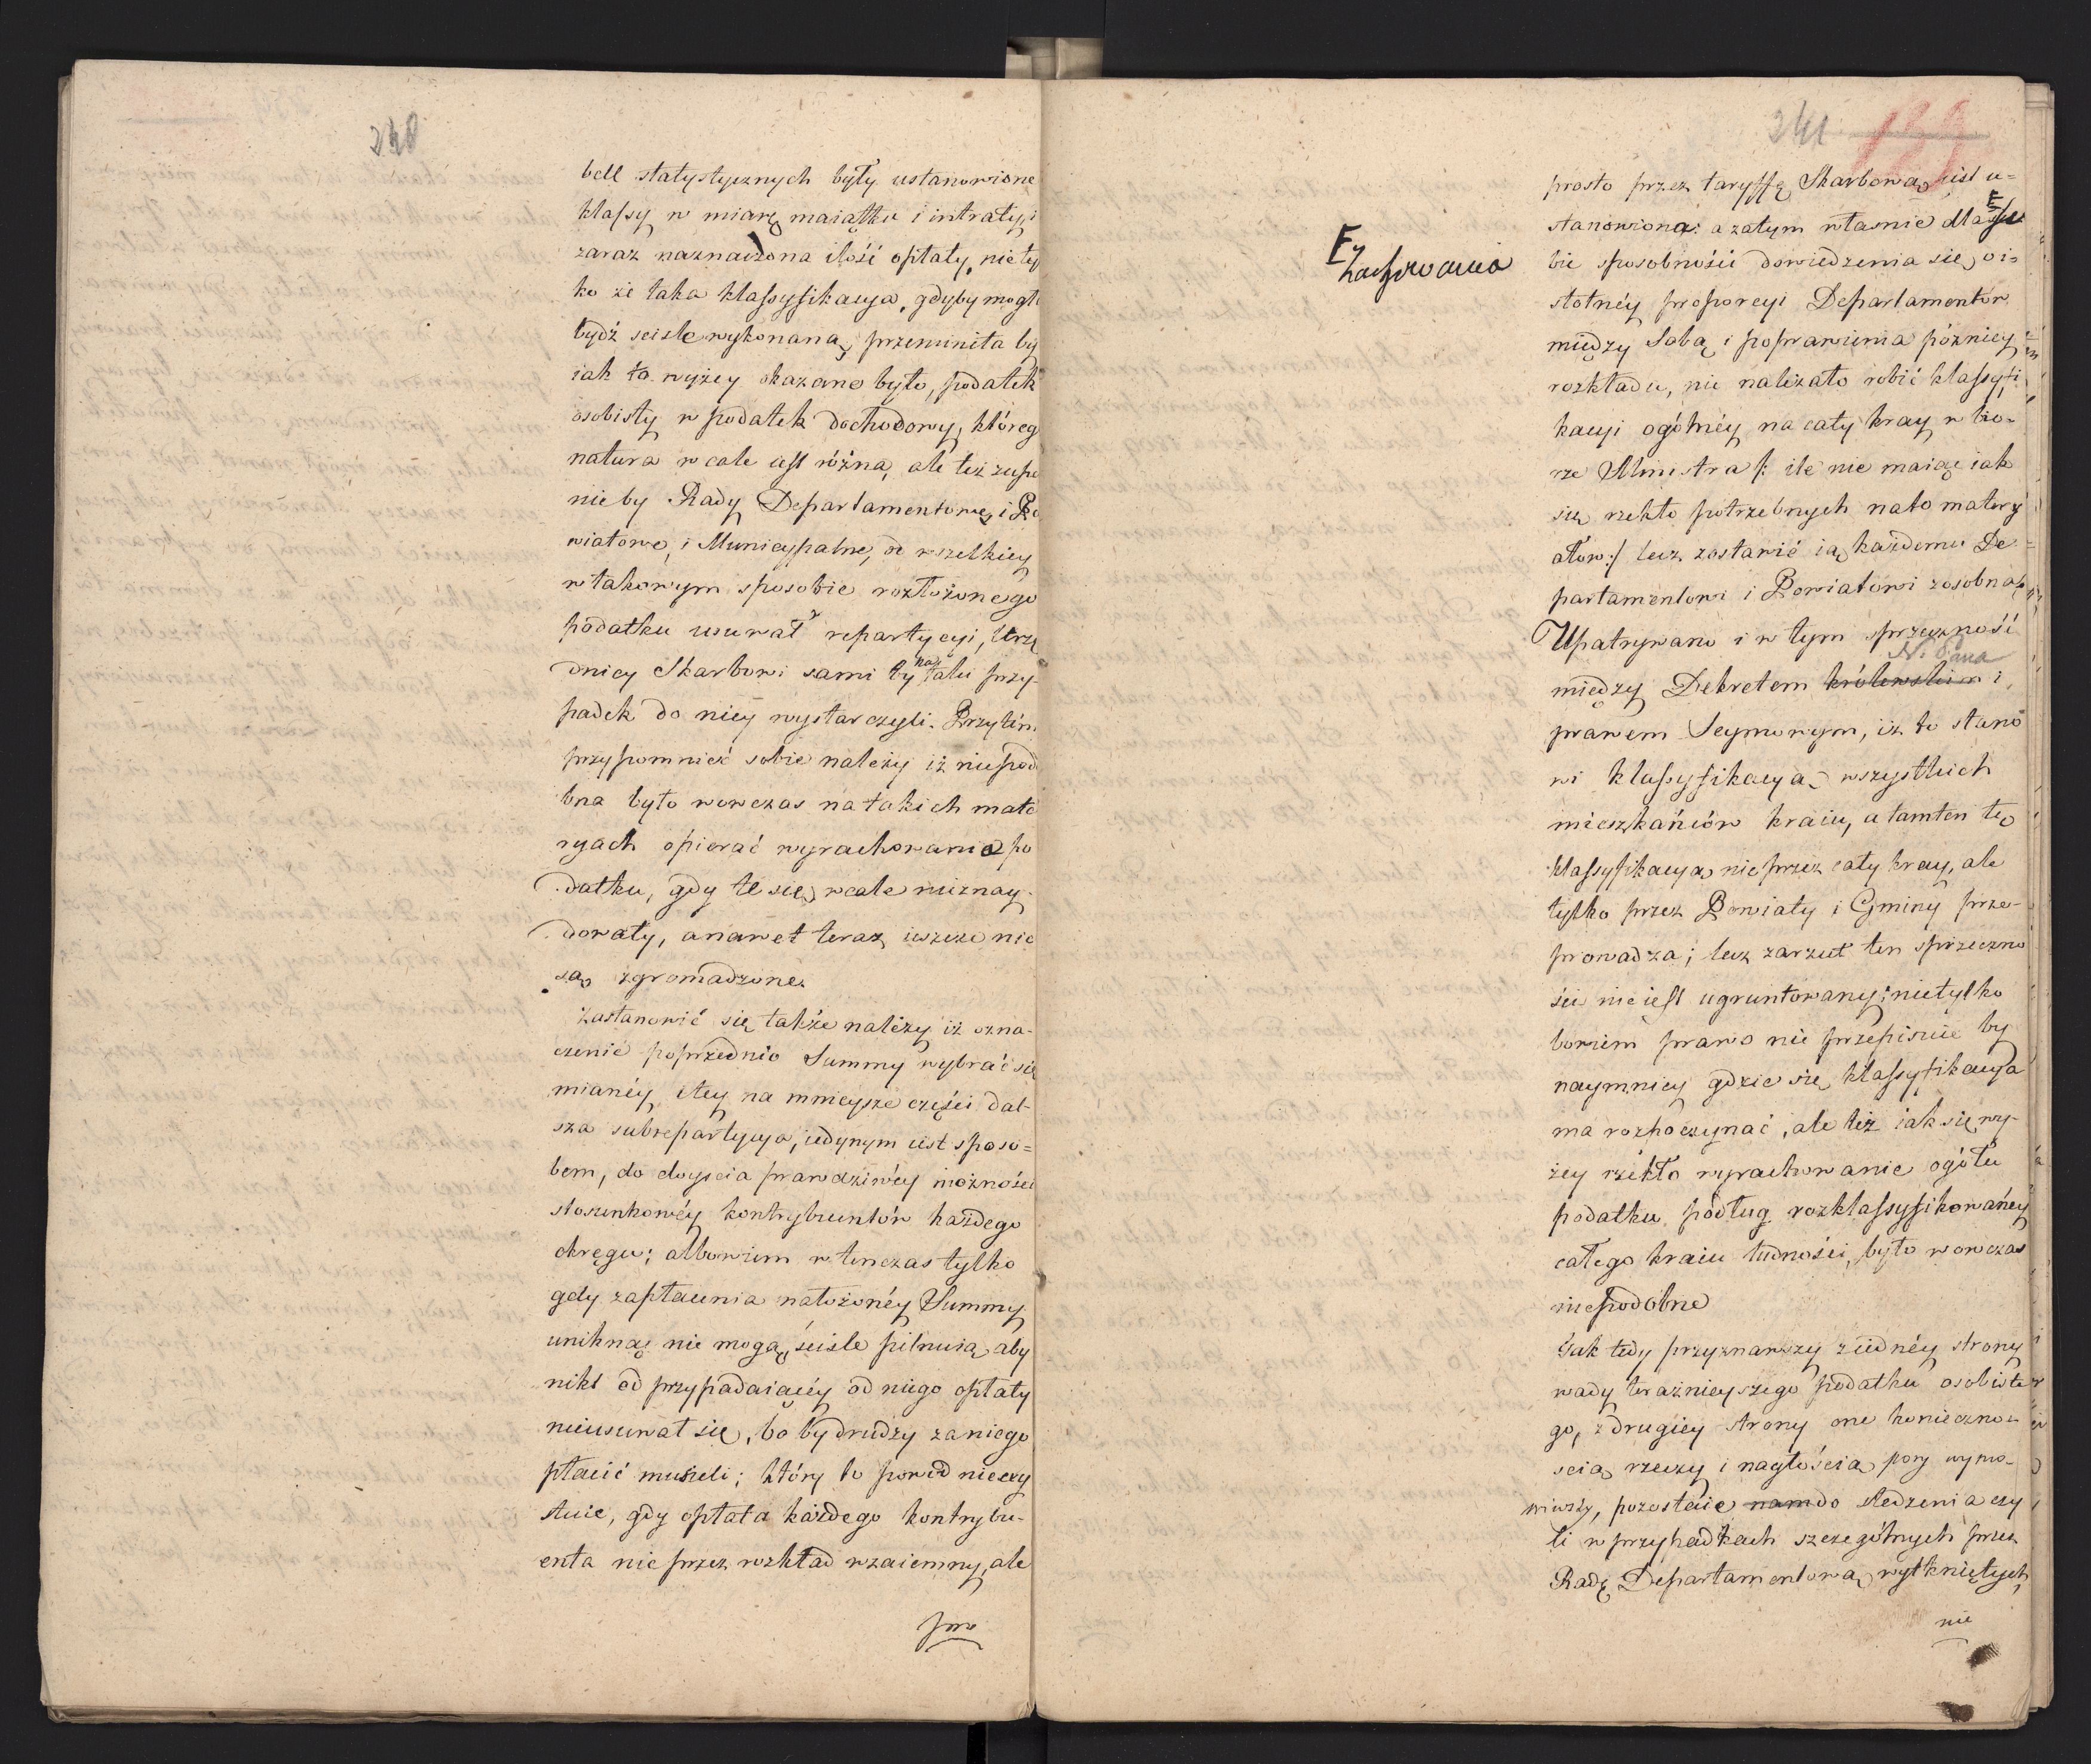 240
bell statystycznych były ustanowione
klassy w miarę maiątku i intraty, i
zaraz naznaczona ilość opłaty, nie tyl
ko że taka klassyfikacya, gdyby mogła
bydź scisle wykonaną, przemieniła by
iak to wyżey okazane było, podatek
osobisty w podatek dochodowy, któreg
natura wcale iest różna, ale też zupe
nieby Rady Departamentowe, i Po
wiatowe, i Municypalne, od wszelkiey
w takowym sposobie rozłożonego
podatku usuwał repartycyi, Urzę
dnicy Skarbowi sami by na taki przy-
padek do niey wystarczyli. Przytém
przypomnieć sobie należy iż niepodo
bna było wowczas na takich mate
ryach opierać wyrachowania po
datku, gdy te się wcale nieznay
dowały, a nawet teraz ieszcze nie
są zgromadzone.
Zastanowić się także należy iż ozna-
czenie poprzednio Summy wybrać się
mianéy, i tey na mnieysze części dal-
sza subrepartycya, iedynym iest sposo=
bem, do doyscia prawdziwéy możności
stosunkowéy kontrybuentów każdego
okręgu; albowiem wtenczas tylko
gdy zapłacenia nałożonéy Summy
uniknąć nie mogą, ściśle pilnuią, aby
nikt od przypadaiącéy od niego opłaty
nieusuwał się, bo by drudzy za niego
płacić musieli; który to powód nieexy
stuie, gdy opłata każdego kontrybu-
enta nie przez rozkład wzaiemny, ale
pro
241 139
prosto przez taryffę Skarbową iest u=
stanowiona: a zatym własnie dla
zachowania
bie sposobności dowiedzenia się, o i=
stotnéy proporcyi Departamentów
między Sobą i poprawienia pózniey
rozkładu, nie należało robić klassyfi
kacyi ogólnéy na cały kray w bió-
rze Ministra /: ile nie maiąc iak
się rzekło potrzebnych na to matery
ałow :/ lecz zostawić ią każdemu De
partamentowi i Powiatowi zosobna,
Upatrywano i w tym sprzeczność
N. Pana
między Dekretem królewskim i
prawem Seymowym, iż to stano
wi klassyfikacyą wszystkich
mieszkańców kraiu, a tamten tę
klassyfikacyą nie przez cały kray, ale
tylko przez Powiaty i Gminy prze-
prowadza; lecz zarzut ten sprzeczno
ści nie iest ugruntowany; nietylko
bowiem prawo nie przepisuie by
naymniey gdzie się klassyfikacya
ma rozpoczynać, ale też iak się wy-
żey rzekło wyrachowanie ogółu
podatku podług rozklassyfikowanéy
całego kraiu ludności, było wowczas
niepodobne
Jak tedy przyznawszy z iednéy strony
wady teraźnieyszego podatku osobiste
go, z drugiey strony one konieczno=
scią rzeczy i nagłością pory wymo-
wiwszy, pozostaie nam do sledzenia czy
li w przypadkach szczególnych przez
Radę Departamentową wytkniętych,
nie